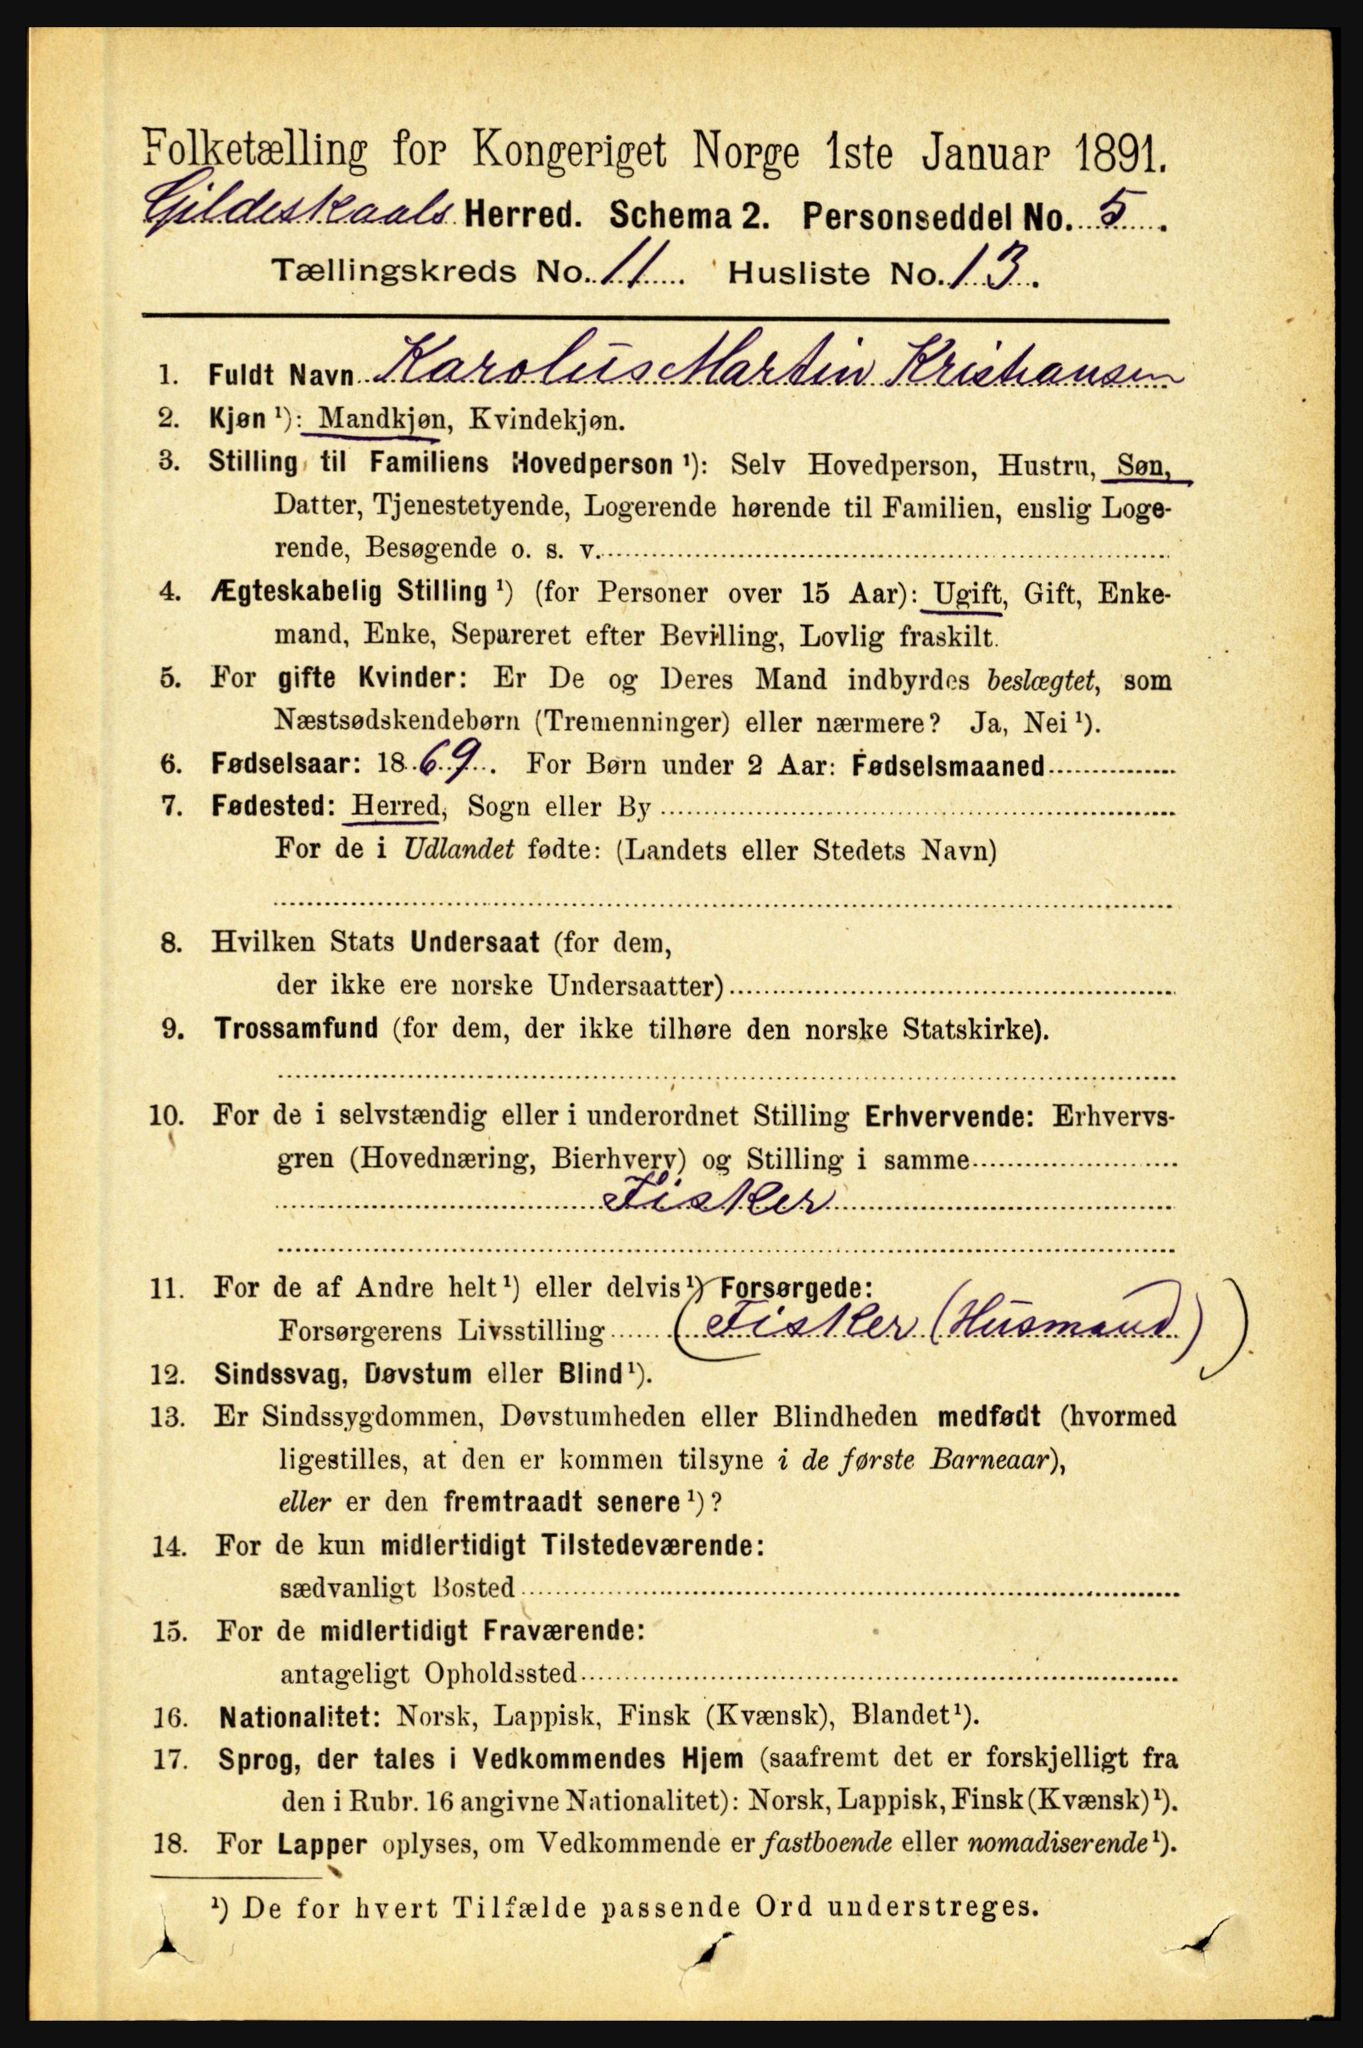 Folketælling for Kongeriget Norge 1ste Januar 1891.
Gildeskaals Herred. Schema 2. Personseddel No. 5.
Tællingskreds No. 11. Husliste No. 13.
1. Fuldt Navn Karolus Martin Kristiansen
2. Kjøn ¹): Mandkjøn, Kvindekjøn.
3. Stilling til Familiens Hovedperson ¹): Selv Hovedperson, Hustru, Søn,
Datter, Tjenestetyende, Logerende hørende til Familien, enslig Loge-
rende, Besøgende o. s. v.
4. Ægteskabelig Stilling ¹) (for Personer over 15 Aar): Ugift, Gift, Enke-
mand, Enke, Separeret efter Bevilling, Lovlig fraskilt.
5. For gifte Kvinder: Er De og Deres Mand indbyrdes beslægtet, som
Næstsødskendebørn (Tremenninger) eller nærmere? Ja, Nei ¹).
6. Fødselsaar: 1869. For Børn under 2 Aar: Fødselsmaaned
7. Fødested: Herred, Sogn eller By
For de i Udlandet fødte: (Landets eller Stedets Navn)
8. Hvilken Stats Undersaat (for dem,
der ikke ere norske Undersaatter)
9. Trossamfund (for dem, der ikke tilhøre den norske Statskirke).
10. For de i selvstændig eller i underordnet Stilling Erhvervende: Erhvervs-
gren (Hovednæring, Bierhverv) og Stilling i samme
Fisker
11. For de af Andre helt ¹) eller delvis ¹) Forsørgede:
Forsørgerens Livsstilling (Fisker (Husmand))
12. Sindssvag, Døvstum eller Blind ¹).
13. Er Sindssygdommen, Døvstumheden eller Blindheden medfødt (hvormed
ligestilles, at den er kommen tilsyne i de første Barneaar),
eller er den fremtraadt senere ¹)?
14. For de kun midlertidigt Tilstedeværende:
sædvanligt Bosted
15. For de midlertidigt Fraværende:
antageligt Opholdssted
16. Nationalitet: Norsk, Lappisk, Finsk (Kvænsk), Blandet ¹).
17. Sprog, der tales i Vedkommendes Hjem (saafremt det er forskjelligt fra
den i Rubr. 16 angivne Nationalitet): Norsk, Lappisk, Finsk (Kvænsk) ¹).
18. For Lapper oplyses, om Vedkommende er fastboende eller nomadiserende ¹).
¹) De for hvert Tilfælde passende Ord understreges.